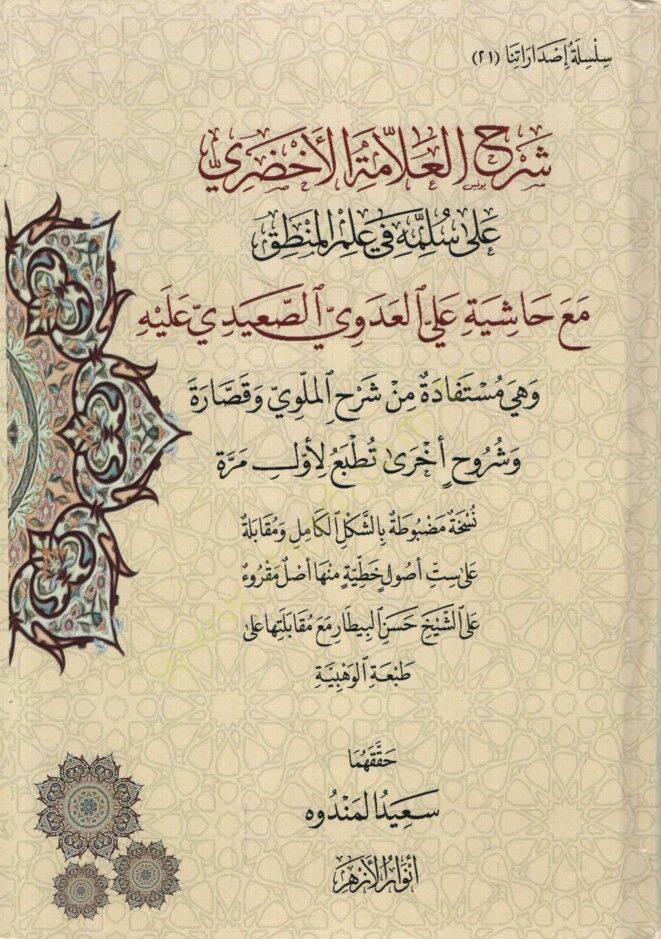 سِلْسِلَةُ إِصْدَارَاتِنَا (٢١)
شَرْحُ العَلَّامَةِ الأَخْضَرِيِّ
عَلَى سُلَّمِهِ فِي عِلْمِ المَنْطِقِ
مَعَ حَاشِيَةِ عَلِيٍّ العَدَوِيِّ الصَّعِيدِيِّ عَلَيْهِ
وَهِيَ مُسْتَفَادَةٌ مِنْ شَرْحِ المَلَّوِيِّ وَقَصَّارَةَ
وَشُرُوحٍ أُخْرَى تُطْبَعُ لِأَوَّلِ مَرَّة
نُسْخَةٌ مَضْبُوطَةٌ بِالشَّكْلِ الكَامِلِ وَمُقَابَلَةٌ
عَلَى سِتِّ أُصُولٍ خَطِّيَّةٍ مِنْهَا أَصْلٌ مَقْرُوءٌ
عَلَى الشَّيْخِ حَسَنِ البِيطَارِ مَعَ مُقَابَلَتِهَا عَلَى
طَبْعَةِ الوَهْبِيَّةِ
حَقَّقَهُمَا
سَعِيدُ المَنْدُوه
أَنْوَارُ الأَزْهَرِ